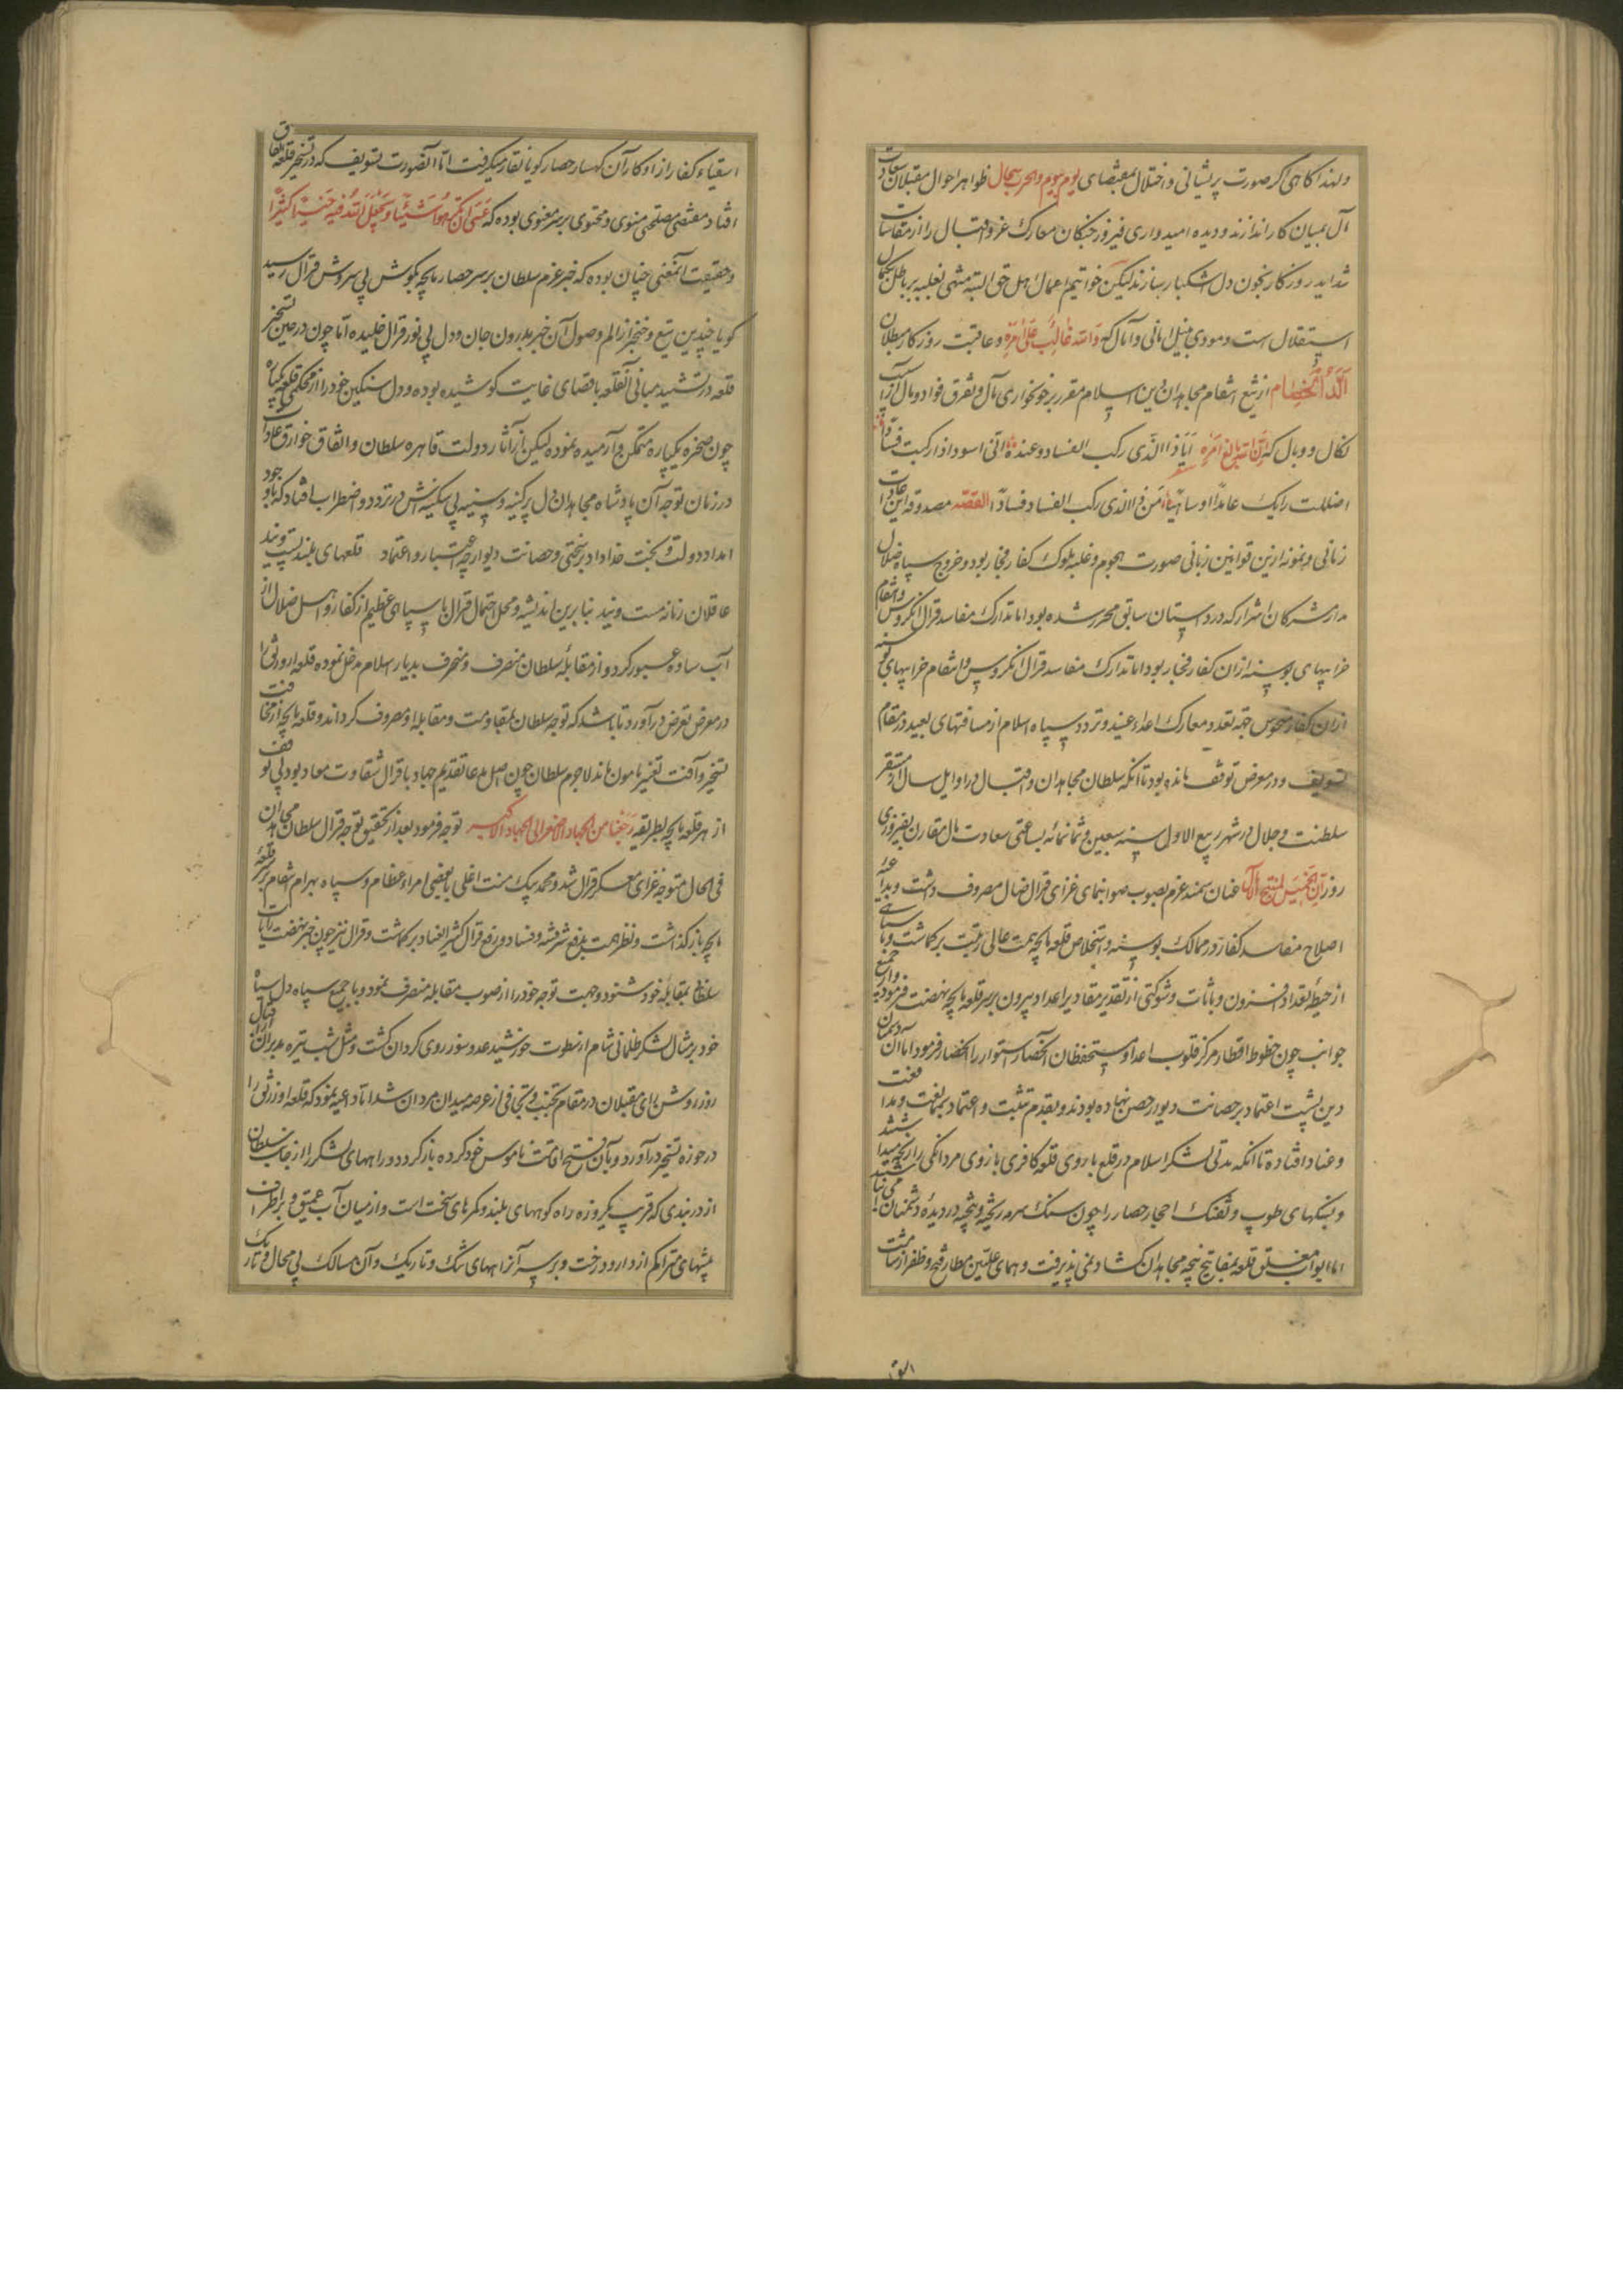 ولهذا کاهی اکر صورت پریشانی و اختلال بمقتضای یوم بیوم والحرب سجال ظواهر احوال مقبلان سعادت
آل بمیان کار اندازند و دیده امیدواری فیروز جنکان معارک غز و اقبال را از مقاسات
شداید روزکار بخون دل اشکبار سازند لیکن خواتیم اعمال اهل حق البته منتهی بغلبه بر باطل بکمال
استقلال است و مودی بنیل امانی و آمال که والله غالب علی امره و عاقبت روزکار مبطلان
الد الخصام از تیغ انتقام مجاهدان دین اسلام مقرر بر خونخواری مآل و تفرق فواد و بال
نکال و وبال که ان الله بالغ امره
زمانی و نمونه ازین قوانین ربانی صورت هجوم و غلبه ملوک کفار فجار بود و خروج سپاه ضلال
مدار شرکان اشرار که در داستان سابق محرر شده بود اما تدارک مفاسد قرال انکروس و انتقام
خرابیهای بوسنه ازان کفار فجار بود اما تدارک مفاسد قرال انکروس و انتقام خرابیهای بوسنه
ازان کفار منحوس جهة تعدد معارک اعداء عنید و تردد سپاه اسلام از مسافتهای بعید در مقام
تسویف و در معرض توقف مانده بود تا آنکه سلطان مجاهدان و اقبال در اوایل سال از مستقر
سلطنت و جلال در شهر ربیع الاول سنه سبعین و ثمانمائه بساعتی سعادت مآل مقارن بفیروزی
روز عنان سمند عزم بصوب صوابنمای غزای قرال ضال مصروف داشت و
اصلاح مفاسد کفار در ممالک بوسنه و استخلاص قلعه یایچه همت عالی رتبت برکماشت و با سپاهی
از حیطهٔ تعداد افزون و باثاث و شوکتی از تقدیر مقادیر اعداد بیرون بر سر قلعه یایچه نهضت فرمود و از جمیع
جوانب چون خطوط اقطار مرکز قلوب اعدا و مستحفظان آنحصار استوار را انحصار فرمود اما آن دشمنان
دین پشت اعتماد بر حصانت دیوار حصن نهاده بودند و بقدم تثبت و اعتماد بممانعت و مدافعت
و عناد افتاده تا آنکه مدتی لشکر اسلام در قلع باروی قلعه کافری بازوی مردانکی را رنجه میداشتند
و بسنکهای طوپ و تفنک احجار حصار را چون سنک سرمه ریخته و پیخته در دیدهٔ دشمنان می
اما ابواب مغلق قلعه بمفاتیح پنجه مجاهدان کشاد نمی پذیرفت و همای علیین مطار فتح و ظفر از شامت
اشقیاء کفار از اوکار آن کهسار حصار کویا نقار میکرفت اما آنصورت تسویف که در تسخیر قلعه اتفاق
افتاد مقتضی مصلحتی منوی و محتوی بر سر معنوی بوده که عسی ان تکرهوا شیئا و یجعل الله فیه خیرا کثیرا
و حقیقت آنمعنی چنان بوده که خبر عزم سلطان بر سر حصار یایچه بکوش بی سروش قرال رسید
کویا چندین تیغ و خنجر از الم وصول آن خبر بدرون جان و دل بی نور قرال خلیده اما چون در حین تسخیر
قلعه در تشیید مبانی آنقلعه باقصای غایت کوشیده بوده و دل سنکین خود را از محکمی قلعه یکباره
چون صخره یکپاره متمکن و آرمیده نموده لیکن از آثار دولت قاهره سلطان و اتفاق خوارق عادات
در زمان توجه آن پادشاه مجاهدان دل پر کینه و سینه بی سکینه اش در تردد و اضطراب افتاد که باوجود
امداد دولت و بخت خداداد بر سختی و حصانت دیوار چه اعتبار و اعتماد قلعهای بلند پست
عاقلان زمانه سست ونید بنابرین اندیشه و محل احتمال قرال با سپاهی عظیم از کفار و اهل ضلال از
آب ساوه عبور کرد و از مقابلهٔ سلطان منصرف و منحرف بدیار اسلام مدخل نموده قلعه ازورنیق را
در معرض تعرض درآورد تا باشد که توجه سلطان بمقاومت و مقابله او مصروف کرداند و قلعه یایچه از مخافت
تسخیر و آفت تغییر مامون ماند لاجرم سلطان چون اصل مدعا تقدیم جهاد با قرال شقاوت معاد بود بی توقف
از سر قلعه یایچه بطریقه رجعنا من الجهاد الاصغر الی الجهاد الاکبر توجه فرمود بعد از تحقیق توجه قرال سلطان مجاهدان
فی الحال متوجه غزای معسکر قرال شد و محمد بیک منت اغلی با بعضی امراء عظام و سپاه بهرام انتقام بر سر قلعهٔ
یایچه باز کذاشت و نظر همت بدفع شر فتنه و فساد و رفع قرال کثیر العناد برکماشت و قرال نیز چون خبر نهضت رایات
سلطان بمقابله خود شنود وجهت توجه خود را از صوب مقابله منصرف نمود و با جمیع سپاه دل سیاه
خود بر مثال لشکر ظلمانی شام از سطوت خورشید عدو سوز روی کردان کشت و مثل شب تیره مدبران از اقبال
روز روشن رای مقبلان در مقام تجنب و تجافی از عرصه میدان مردان شد اما داعیه نمود که قلعه ازورنیق را
در حوزه تسخیر درآورد و بآن فتح اقامت ناموس خود کرده باز کردد و راههای لشکر را از جانب سلطان
از دربندی که قریب یکروزه راه کوههای بلند و کمرهای سخت است و از میان آب عمیق و بر اطراف
بیشهای متراکم از دار و درخت و بر سر آنراههای تنک و تاریک و آن مسالک بی مجال و تاریک